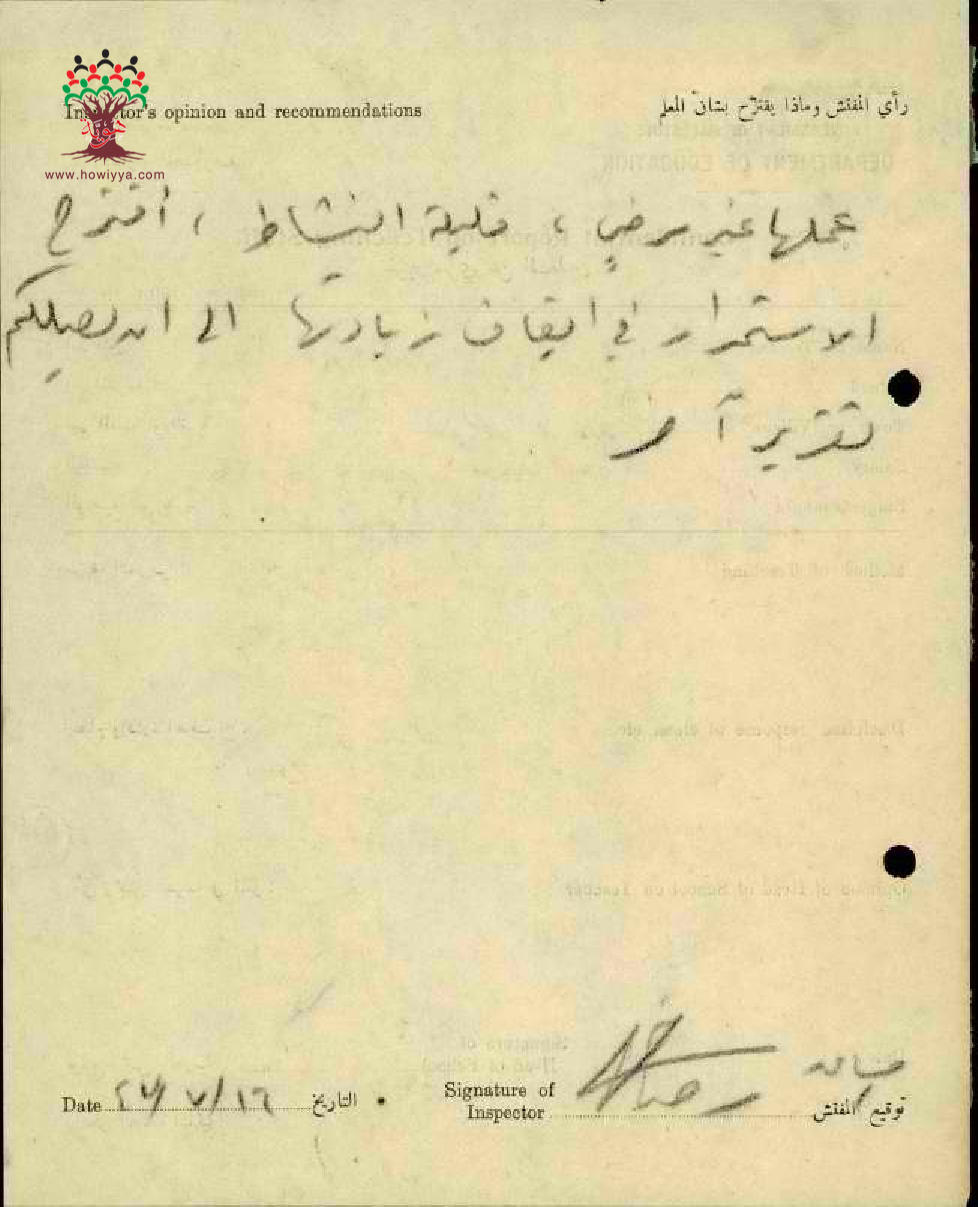 Inspector's opinion and recommendations
رأي المفتش وماذا يقترح بشان المعلم
www.howiyya.com
عملها غير مرضٍ ، قليلة النشاط ، أقترح
الاستمرار في ايقاف زيادتها الى ان نصلكم
تقرير آخر
Date ١٦/٧/ التاريخ
Signature of Inspector توقيع المفتش